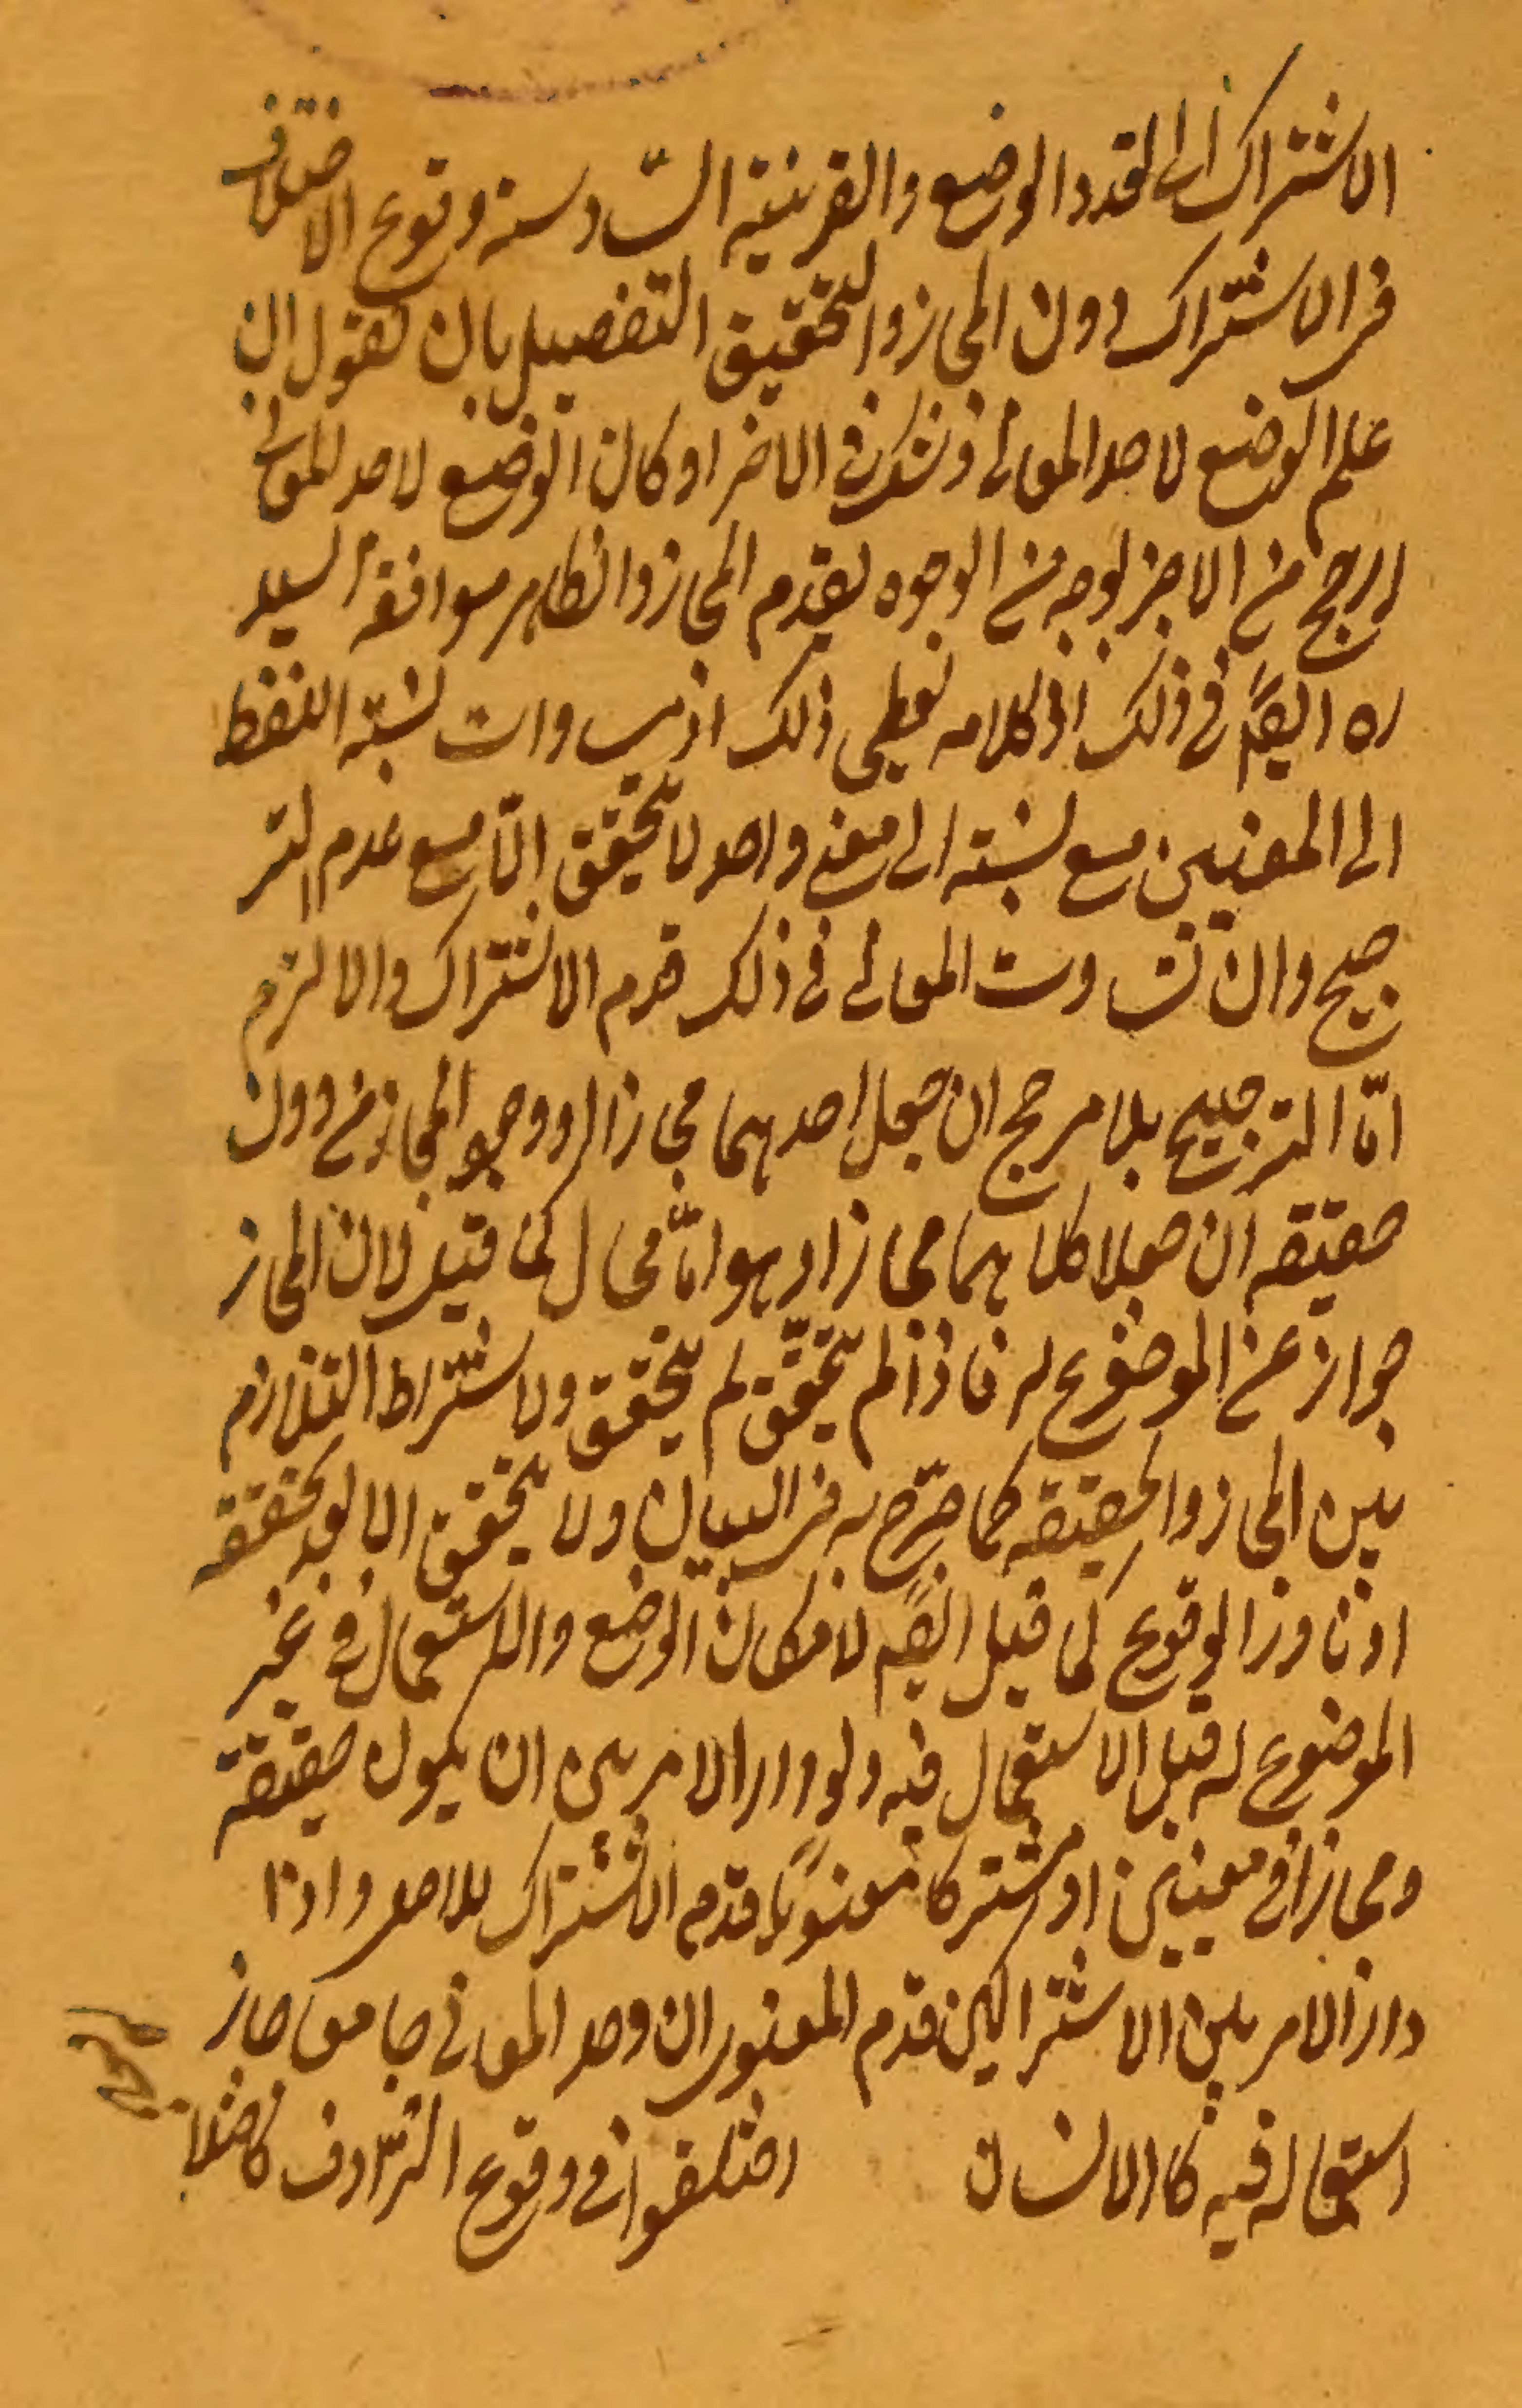 الاشتراك الى تعدد الوضع والقرينية السّادسة وقوع الاختلاف
في الاشتراك دون المجاز والتحقيق التفصيل بان نقول ان
علم الوضع لاحد المعاني وشك في الاخر او كان الوضع لاحد المعاني
ارجح من الاخر لوجه من الوجوه يقدم المجاز والظاهر موافقة السيد
ره ايضًا في ذلك اذ كلامه يعطي ذلك اذ نسبة اللفظ
الى المعنيين مع نسبته الى معنى واحد لا يتحقق الّا مع عدم التر
جيح وان تساوت المعاني في ذلك قدم الاشتراك والا لزم
امّا الترجيح بلا مرجح ان جعل احدهما مجازا او وجود المجاز من دون
حقيقة ان جعلا كلاهما مجازا وهو امّا محال كما قيل لان المجاز
جواز عن الموضوع له فاذا لم يتحقّق لم يتحقق ولاشتراط التلازم
بين المجاز والحقيقة كما صرّح به في البيان ولا يتحقق الا بعد تحققه
او نادر الوقوع كما قيل ايضًا لامكان الوضع والاستعمال في غير
الموضوع له قبل الاستعمال فيه ولو دار الامر بين ان يكون حقيقة
ومجازا في معنيين او مشتركا معنويًا قدم الاشتراك للاصل واذا
دار الامر بين الاشتراكين قدم المعنوي ان وجد المعاني جامعا جاز
استعماله فيه كالانسان اختلفوا في وقوع الترّادف فاختلا